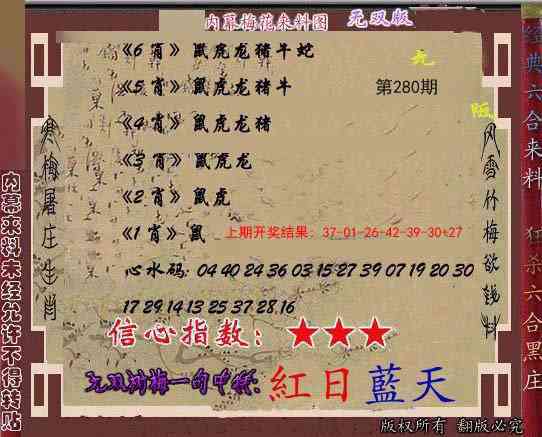 内幕梅花来料图 无双版
《6肖》鼠虎龙猪牛蛇
《5肖》鼠虎龙猪牛
第280期
《4肖》鼠虎龙猪
《3肖》鼠虎龙
《2肖》鼠虎
《1肖》鼠
上期开奖结果：37-01-26-42-39-30-27
心水码: 04 40 24 36 03 15 27 39 07 19 20 30
17 29 14 13 25 37 28.16
信心指数：★★★
无双刘梅一句中特: 紅日藍天
版权所有 翻版必究
寒梅屠庄生肖
风雪竹梅欲钱料
内幕来料未经允许不得转贴
经典六合来料
狂杀六合黑庄